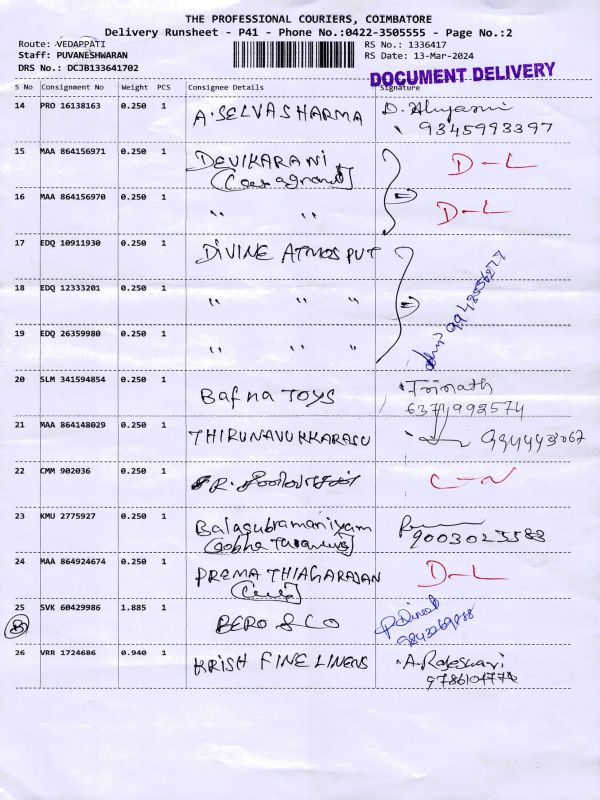 THE PROFESSIONAL COURIERS, COIMBATORE
Delivery Runsheet - P41 - Phone No.:0422-3505555 - Page No.:2
Route: VEDAPPATI RS No.: 1336417
Staff: PUVANESHWARAN RS Date: 13-Mar-2024
DRS No.: DCJB133641702
DOCUMENT DELIVERY
S No Consignment No Weight PCS Consignee Details Signature
14 PRO 16138163 0.250 1 A. SELVA SHARMA D.
9345993397
15 MAA 864156971 0.250 1 DEVIKARANI D-L
16 MAA 864156970 0.250 1 " " D-L
17 EDQ 10911930 0.250 1 DIVINE ATMOS PVT
18 EDQ 12333201 0.250 1 " " "
19 EDQ 26359980 0.250 1 " " "
20 SLM 341594854 0.250 1 Bafna TOYS Trinath
6374993574
21 MAA 864148029 0.250 1 THIRUNAVUKKARASU
22 CMM 902036 0.250 1 R. C-N
23 KMU 2775927 0.250 1 Balasubramaniyam
9003023588
24 MAA 864924674 0.250 1 PREMA THIAGARAJAN D-L
25 SVK 60429986 1.885 1 BERO & CO P. Dinesh
B
26 VRR 1724686 0.940 1 KRISH FINE LINENS A. Rajeswari